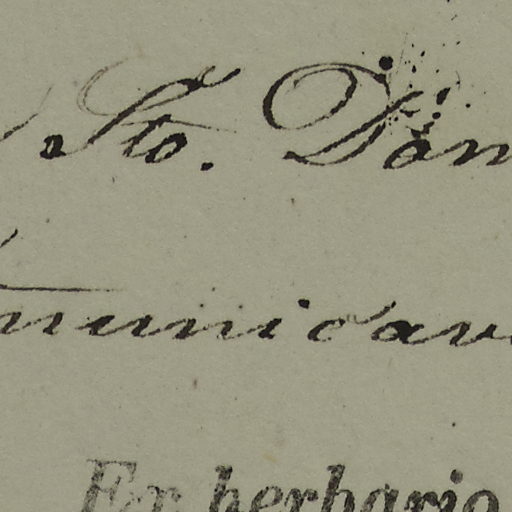 Sto. Dom
municav
Ex herbario